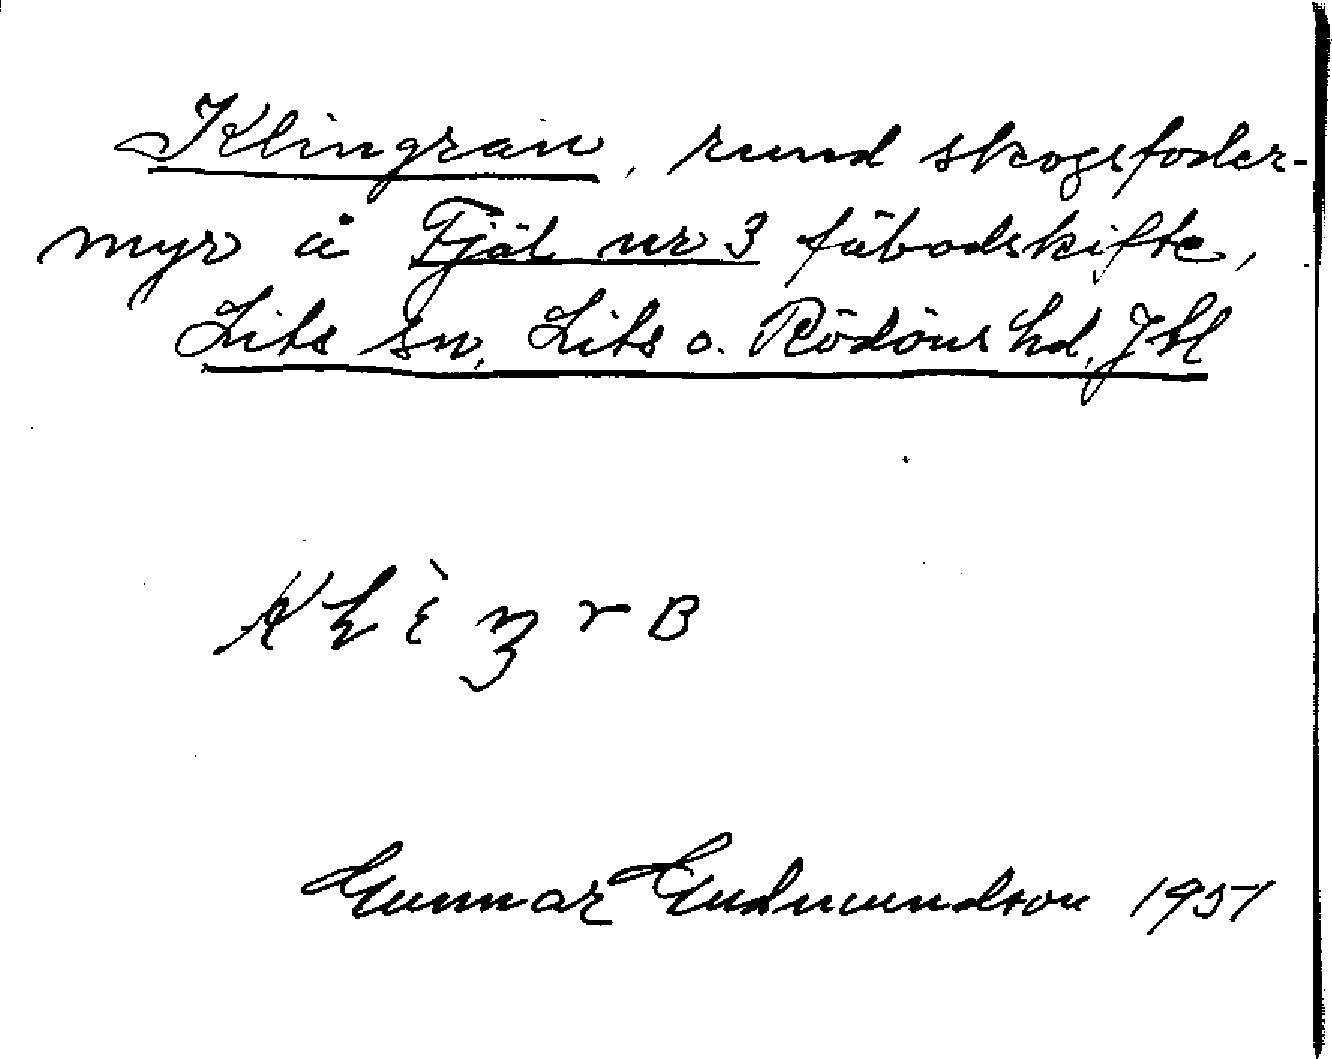 Klingran, rund skogsfoder-
myr å Fjäl nr 3 fäbodskifte,
Lits sn, Lits o. Rödöns hd, Jtl
Gunnar Gudmundson 1951